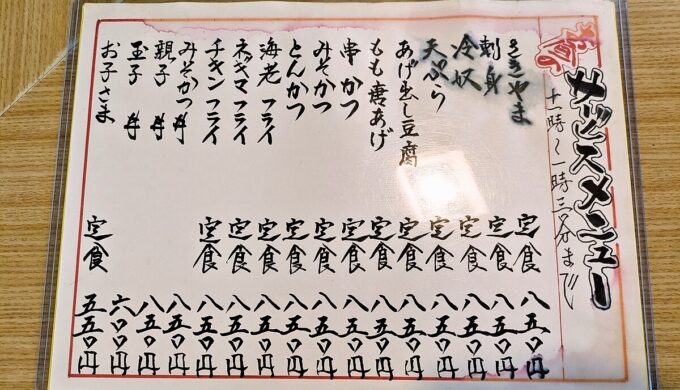 サービスメニュー
時〜一時三〇分まで
定食 八五〇円
刺身 定食 八五〇円
冷奴 定食 八五〇円
天ぷら 定食 八五〇円
あげ出し豆腐 定食 八五〇円
もも唐あげ 定食 八五〇円
串かつ 定食 八五〇円
みそかつ 定食 八五〇円
とんかつ 定食 八五〇円
海老フライ 定食 八五〇円
ネギマフライ 定食 八五〇円
チキンフライ 定食 八五〇円
みそかつ丼 八五〇円
親子丼 八五〇円
玉子丼 六〇〇円
お子さま 定食 五五〇円